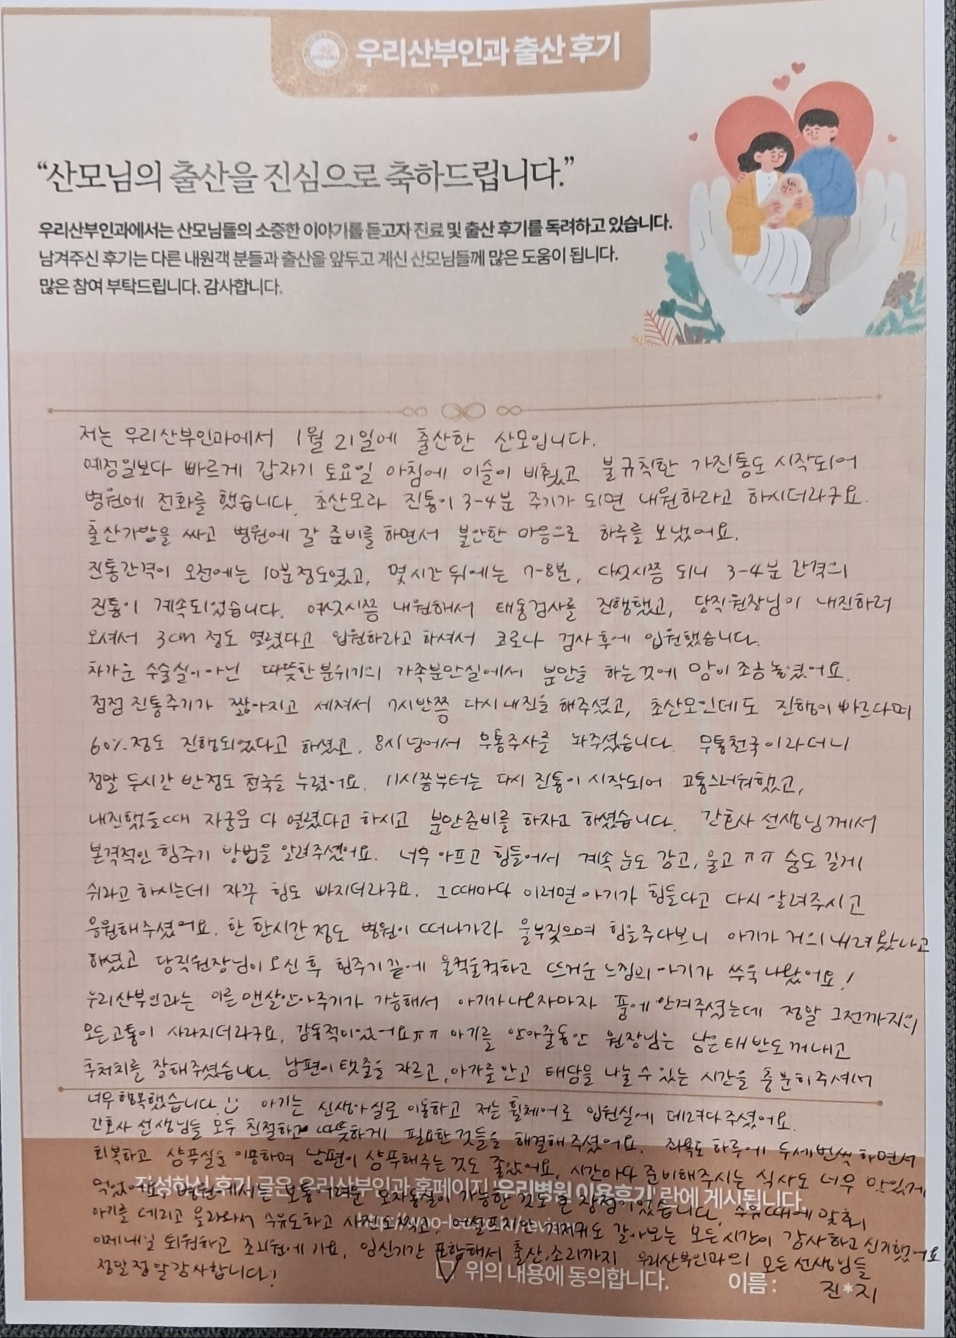 우리산부인과 출산 후기
“산모님의 출산을 진심으로 축하드립니다.”
우리산부인과에서는 산모님들의 소중한 이야기를 듣고자 진료 및 출산 후기를 독려하고 있습니다.
남겨주신 후기는 다른 내원객 분들과 출산을 앞두고 계신 산모님들께 많은 도움이 됩니다.
많은 참여 부탁드립니다. 감사합니다.
저는 우리산부인과에서 1월 21일에 출산한 산모입니다.
예정일보다 빠르게 갑자기 토요일 아침에 이슬이 비췄고 불규칙한 가진통도 시작되어
병원에 전화를 했습니다. 초산모라 진통이 3-4분 주기가 되면 내원하라고 하시더라구요.
출산가방을 싸고 병원에 갈 준비를 하면서 불안한 마음으로 하루를 보냈어요.
진통간격이 오전에는 10분정도였고, 몇시간 뒤에는 7-8분, 다섯시쯤 되니 3-4분 간격의
진통이 계속되었습니다. 여섯시쯤 내원해서 태동검사를 진행했고, 당직원장님이 내진하러
오셔서 3cm 정도 열렸다고 입원하라고 하셔서 코로나 검사후에 입원했습니다.
차가운 수술실이 아닌 따뜻한 분위기의 가족분만실에서 분만을 하는것에 맘이 조금 놓였어요.
점점 진통주기가 짧아지고 세져서 7시반쯤 다시 내진을 해주셨고, 초산모인데도 진행이 빠르다며
60%정도 진행되었다고 하셨고, 8시 넘어서 무통주사를 놔주셨습니다. 무통천국이라더니
정말 두시간 반정도 천국을 누렸어요. 11시쯤부터는 다시 진통이 시작되어 고통스러워했고,
내진했을때 자궁문 다 열렸다고 하시고 분만준비를 하자고 하셨습니다. 간호사 선생님께서
본격적인 힘주기 방법을 알려주셨어요. 너무 아프고 힘들어서 계속 눈도 감고, 울고 ㅠㅠ 숨도 길게
쉬라고 하시는데 자꾸 힘도 빠지더라구요. 그때마다 이러면 아기가 힘들다고 다시 알려주시고
응원해주셨어요. 한 한시간 정도 병원이 떠나가라 울부짖으며 힘을주다보니 아기가 거의 내려왔다고
하셨고 당직원장님이 오신 후 힘주기 끝에 울컥울컥하고 뜨거운 느낌의 아기가 쑤욱 나왔어요!
우리산부인과는 이른 맨살안아주기가 가능해서 아기가 나오자마자 품에 안겨주셨는데 정말 그전까지의
모든고통이 사라지더라구요, 감동적이었어요ㅠㅠ 아기를 안아줄동안 원장님은 남은 태반도 꺼내고
후처치를 잘해주셨습니다. 남편이 탯줄을 자르고, 아가를 안고 태담을 나눌 수 있는 시간을 충분히 주셔서
너무 행복했습니다. 아기는 신생아실로 이동하고 저는 휠체어로 입원실에 데려다 주셨어요.
간호사 선생님들 모두 친절하고 따뜻하게 필요한 것들을 해결해 주셨어요. 좌욕도 하루에 두세번씩 하면서
회복하고 샴푸실을 이용하며 남편이 샴푸해주는 것도 좋았어요. 시간마다 준비해주시는 식사도 너무 맛있게
먹었어요. 병원에서는 보통 어려운 모자동실이 가능한 것도 큰 장점이었습니다. 수유때에 맞춰
작성하신 후기 글은 우리산부인과 홈페이지 '우리병원 이용후기' 란에 게시됩니다.
아기를 데리고 올라와서 수유도하고 사진도찍고, 어설프지만 기저귀도 갈아보는 모든시간이 감사하고 신기했어요
이제 내일 퇴원하고 조리원에 가요, 임신기간 포함해서 출산, 조리까지 우리산부인과의 모든 선생님들
정말 정말 감사합니다!
위의 내용에 동의합니다. 이름 : 진*지